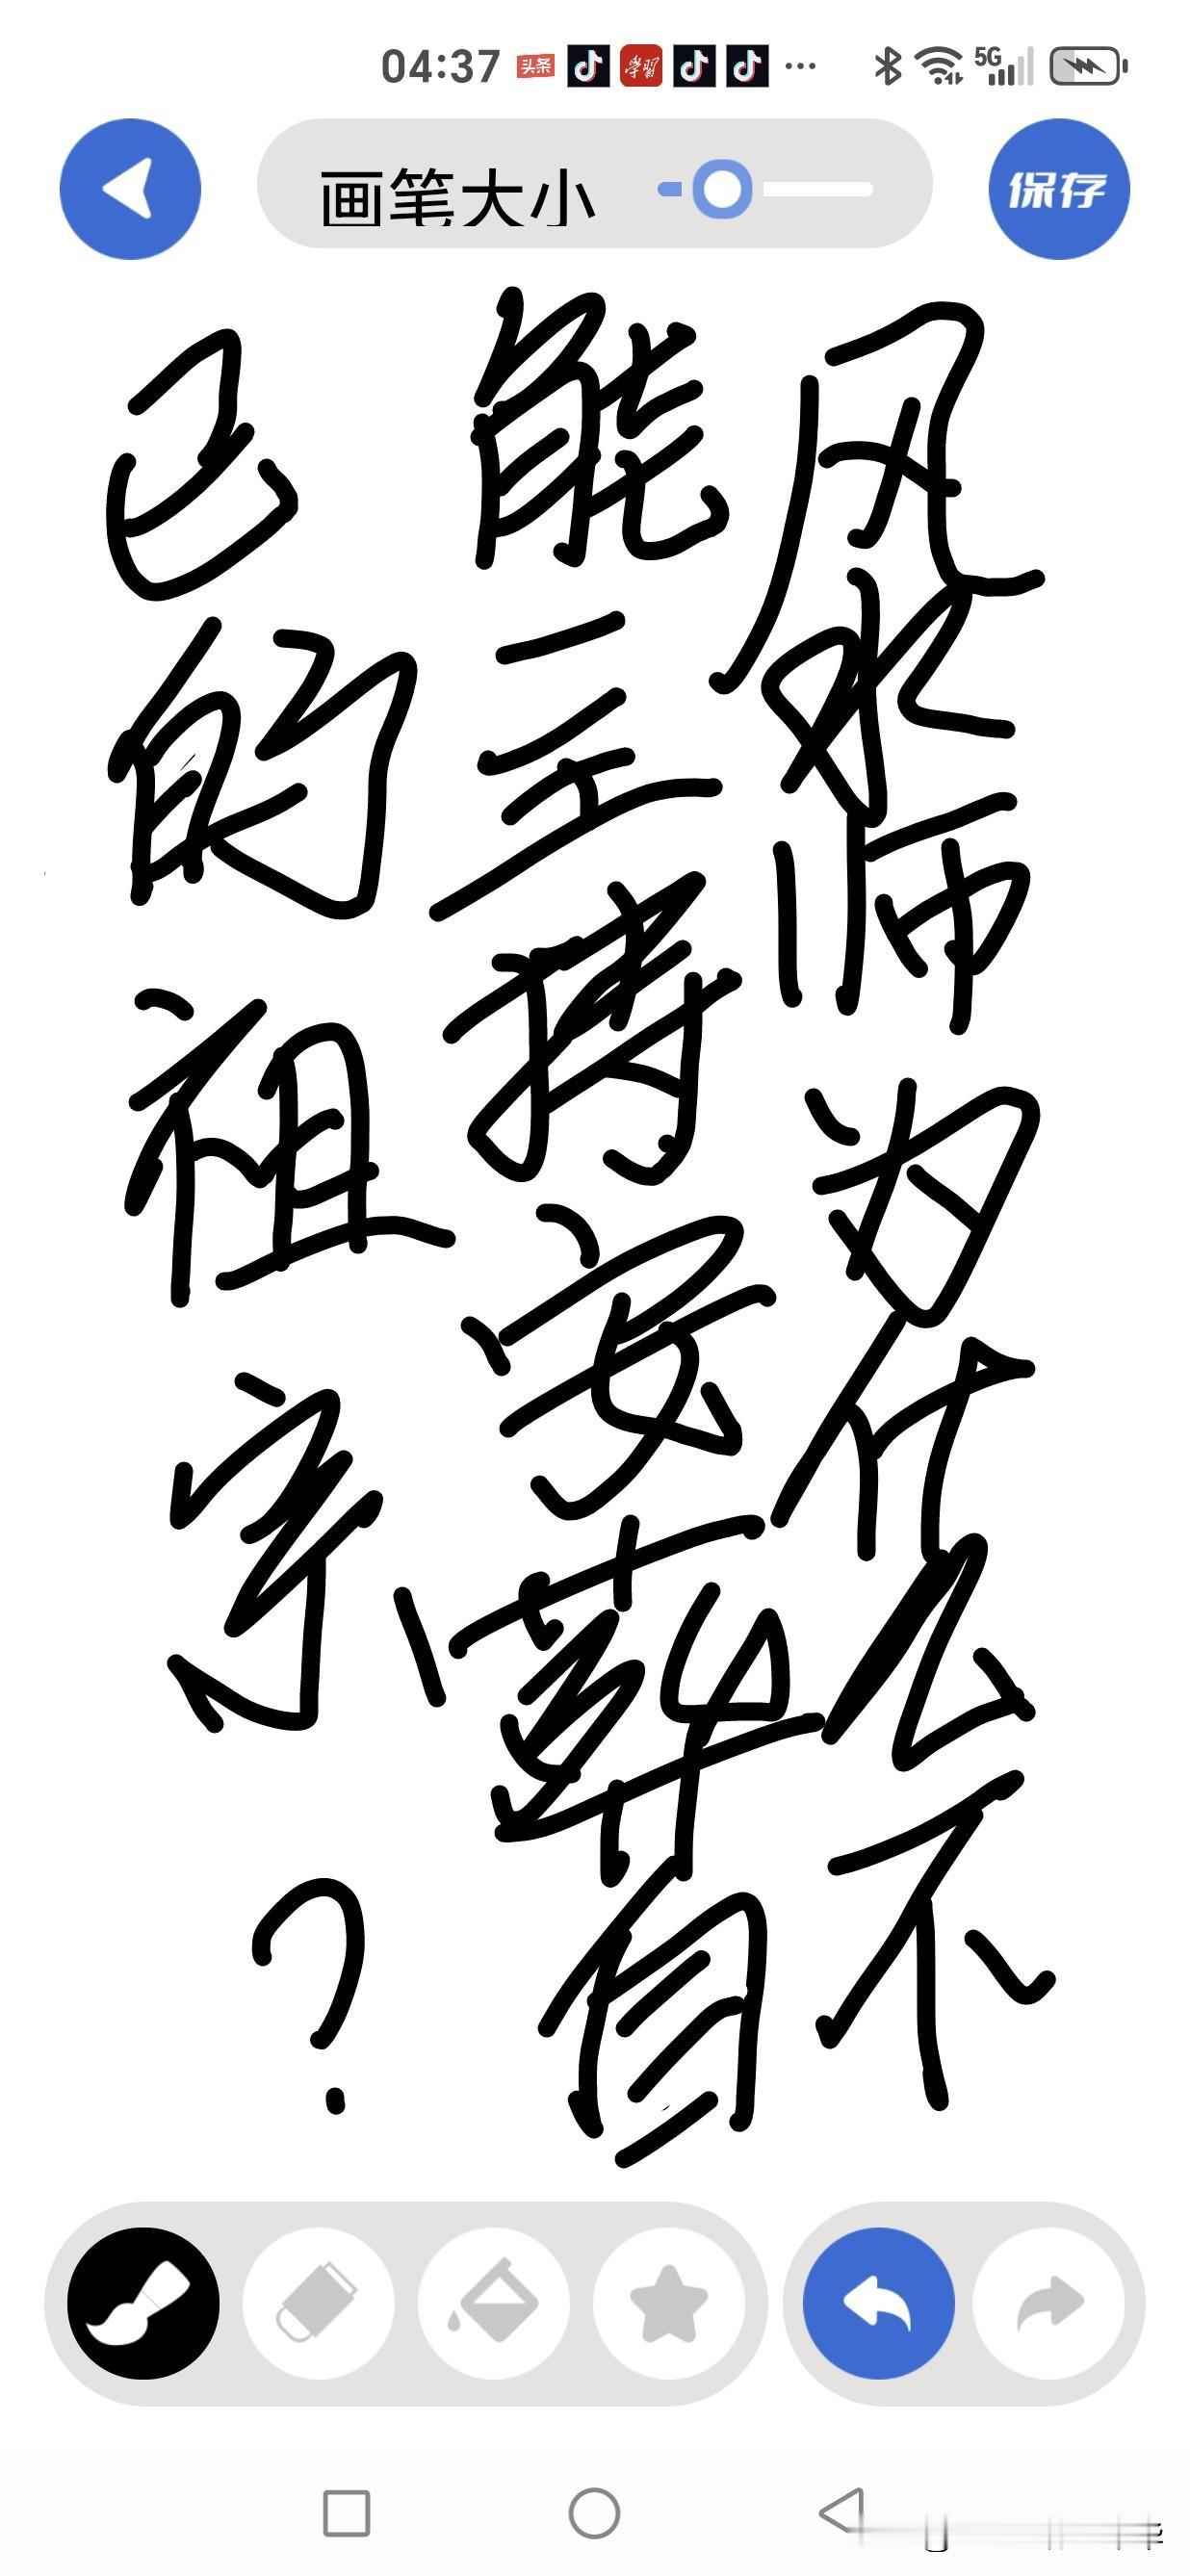 04:37 头条 学習 ... 5G
画笔大小
保存
风水师为什么不
能主持安葬自
己的祖宗?